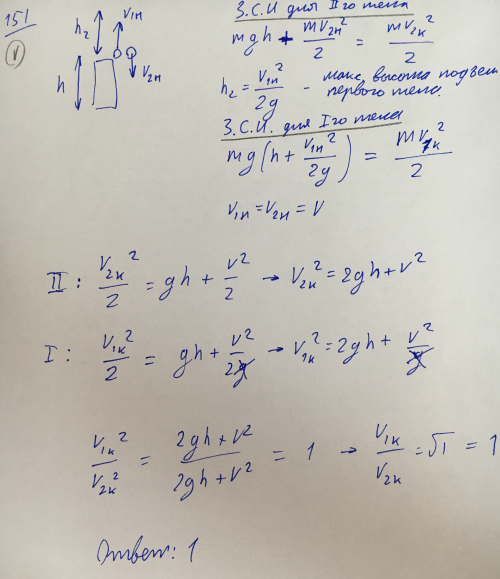 151
V
h₂
V₁ₙ
V₂ₙ
h
З.С.И для IIго тела
mgh + mV₂ₙ²/2 = mV₂ₖ²/2
h₂ = V₁ₙ²/2g - макс. высота подъем
первого тела.
З.С.И. для Iго тела
mg(h + V₁ₙ²/2g) = mV₁ₖ²/2
V₁ₙ = V₂ₙ = V
II: V₂ₖ²/2 = gh + V²/2 → V₂ₖ² = 2gh + V²
I: V₁ₖ²/2 = gh + V²/2g → V₁ₖ² = 2gh + V²/g
V₁ₖ²/V₂ₖ² = 2gh + V²/2gh + V² = 1 → V₁ₖ/V₂ₖ = √1 = 1
Ответ: 1